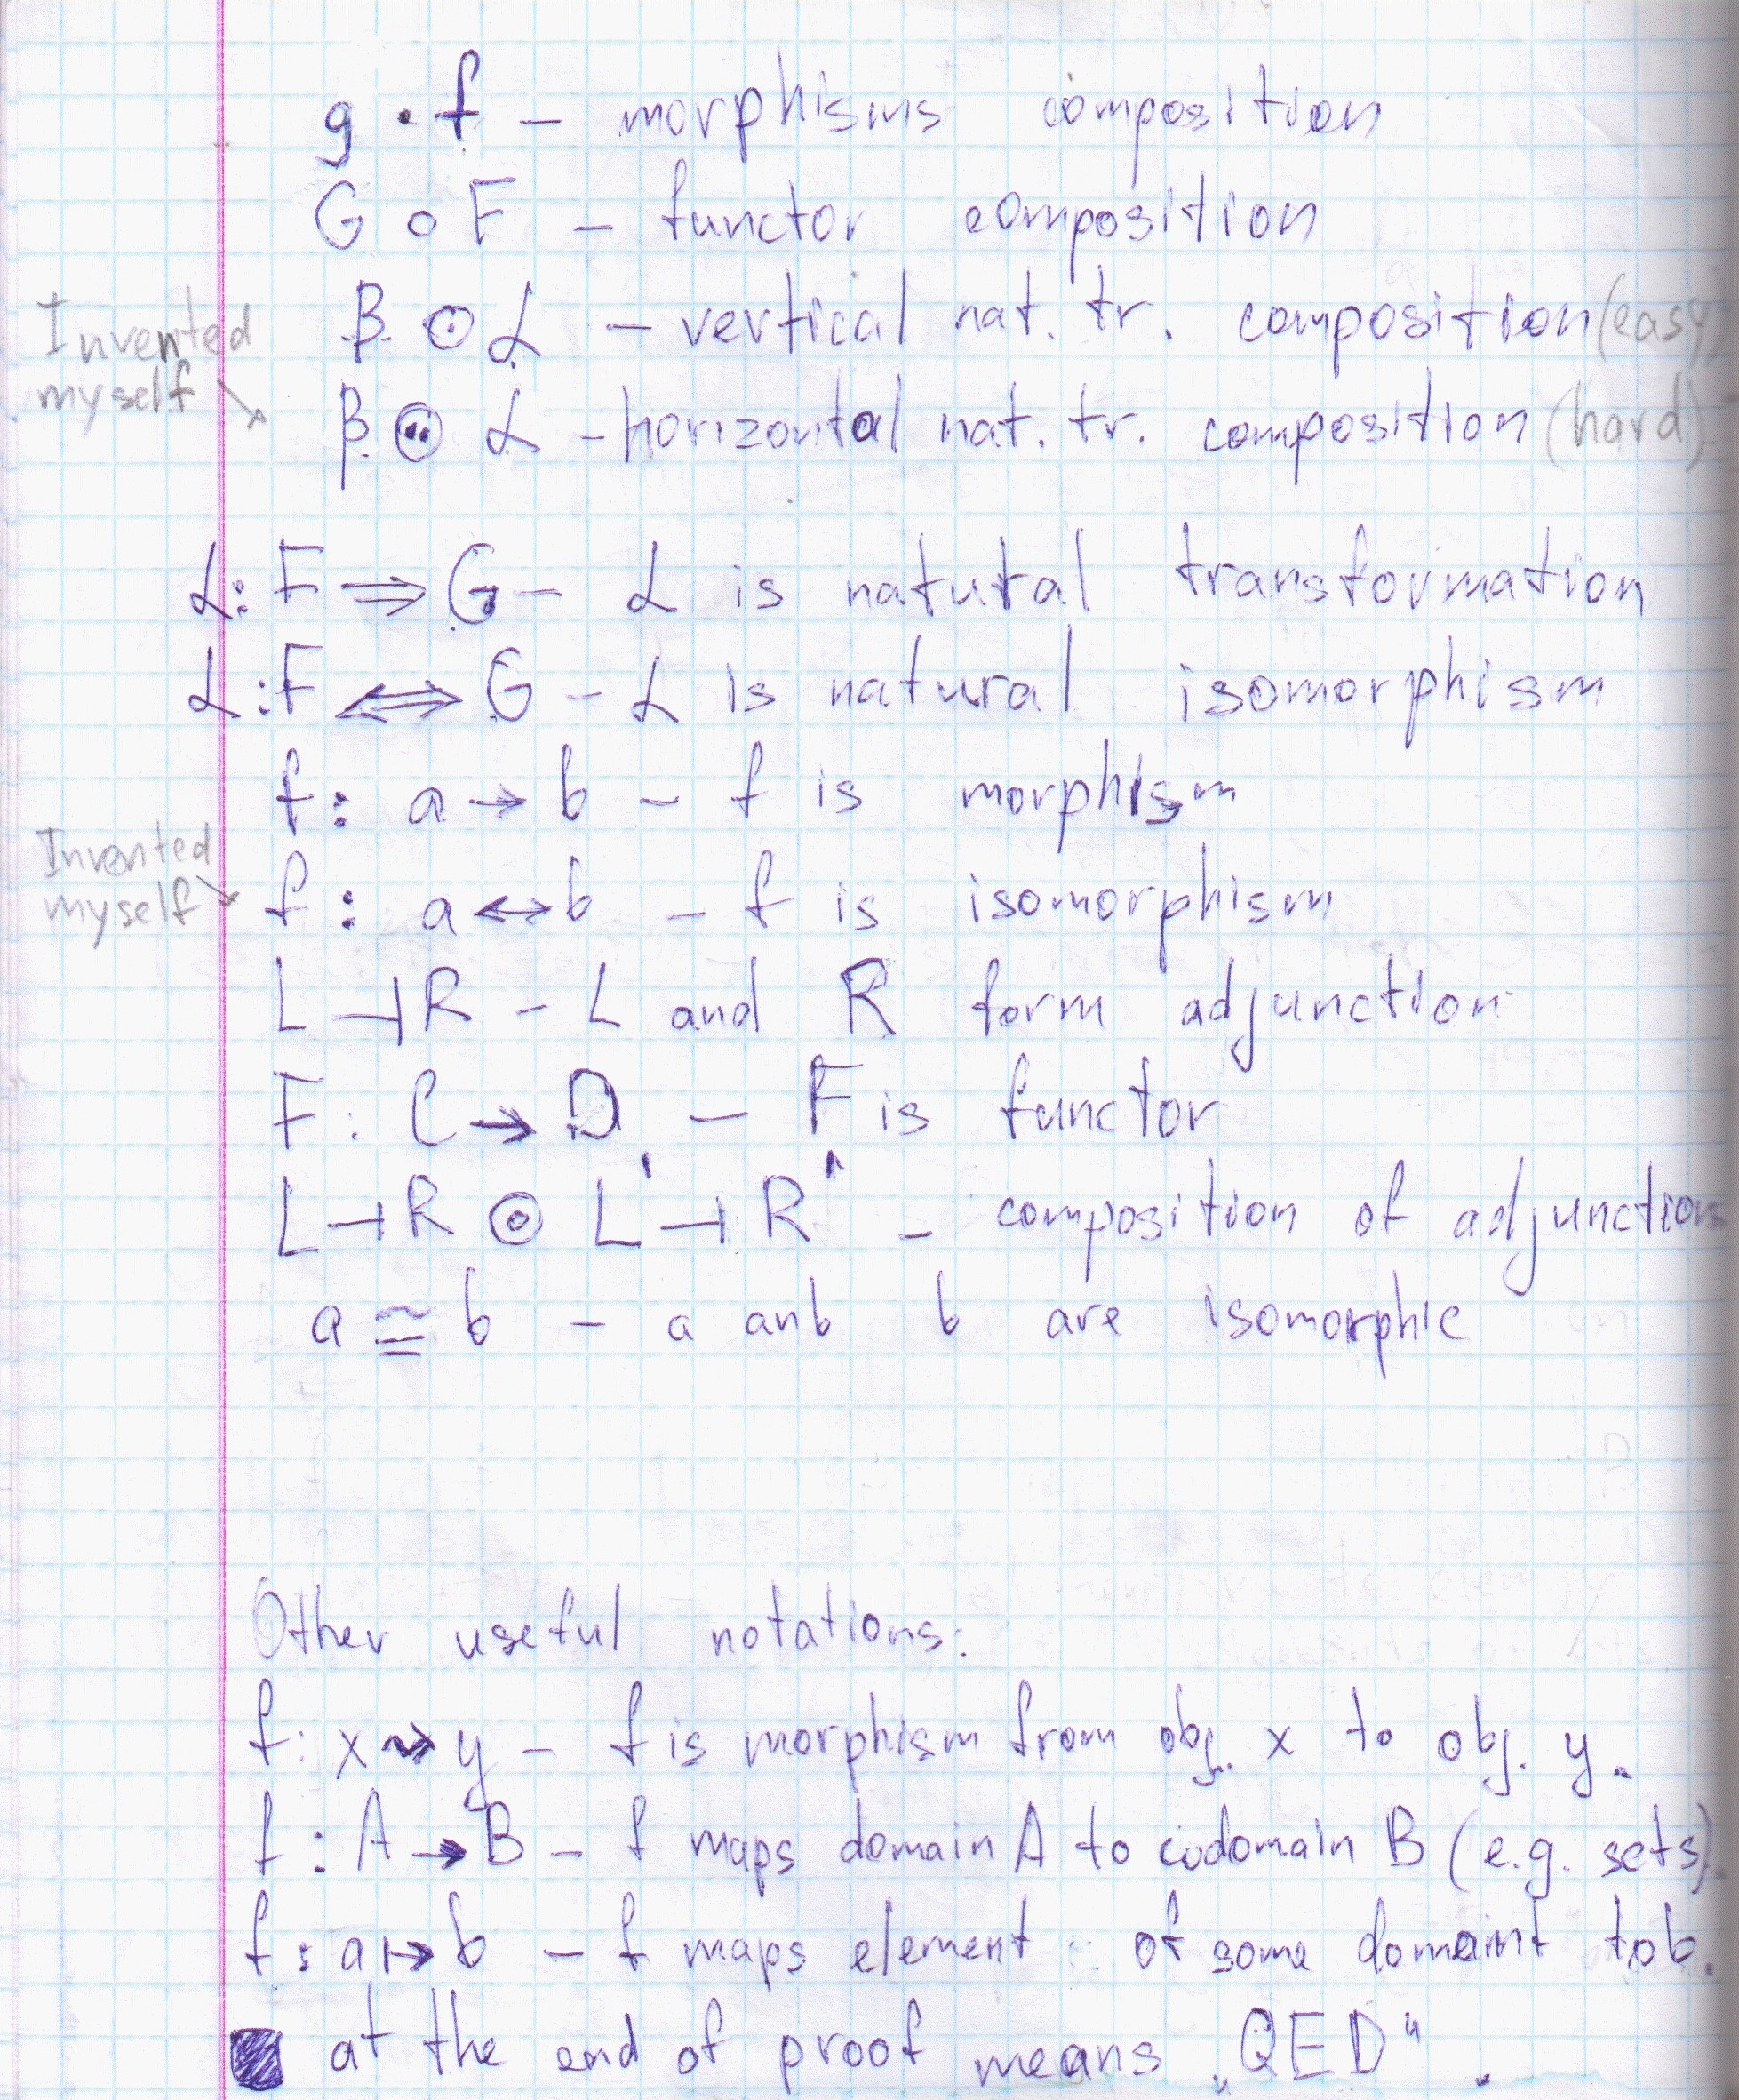 g · f – morphisms composition
G ∘ F – functor composition
β ⊙ α – vertical nat. tr. composition (easy)
Invented
myself ↘
β ⊙ α – horizontal nat. tr. composition (hard)
α: F ⇒ G – α is natural transformation
α: F ⇔ G – α is natural isomorphism
f: a → b – f is morphism
Invented
myself ↘
f: a ↔ b – f is isomorphism
L ⊣ R – L and R form adjunction
F: C → D – F is functor
L ⊣ R ⊚ L' ⊣ R' – composition of adjunctions
a ≅ b – a anb b are isomorphic
Other useful notations:
f: x ⇝ y – f is morphism from obj. x to obj. y.
f: A → B – f maps domain A to codomain B (e.g. sets).
f: a ↦ b – f maps element of some domaint to b.
■ at the end of proof means „QED".